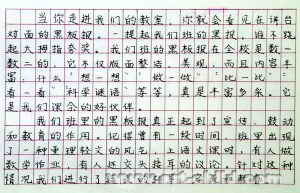 当你走进我们的教室，你就会看见在讲台
对面的黑板报。一提起我们班的黑报，谁不跷
起大拇指夸奖。我们班的黑板报在全校是数一
数二的。它不仅版面整洁、美观，而且内容丰
富，什么“想一想”“做一做”“比一比”
看一看“科学谜语”等等，真是丰富多采。它
是我们课余的好伙伴。
我们班里的黑板报真正起到了宣传、鼓动
和教育的作用。记得曾有一段时间，班里出现
了一种重理轻文的风气，上语文课时，有人做
数学作业，有人还交头接耳的议论。针对这种
情况我们进行了